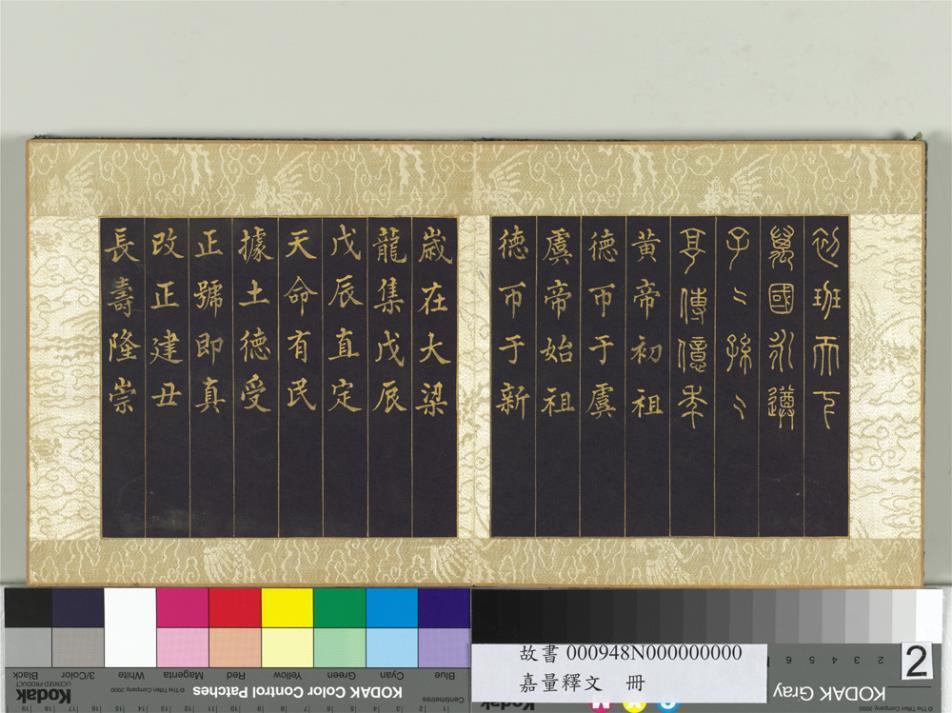 初班天下
萬國永遵
子〻孫〻
享傳億年
黃帝初祖
德帀于虞
虞帝始祖
德帀于新
歲在大梁
龍集戊辰
戊辰直定
天命有民
據土德受
正號即真
改正建丑
長壽隆崇
Blue
Cyan
Green
Yellow
Red
Magenta
White
3/Color
Black
KODAK Color Control Patches
© The Tiffen Company, 2000
Kodak
LICENSED PRODUCT
Centimetres
KODAK Gray
© The Tiffen Company, 2000
故書 000948N000000000
嘉量釋文 冊
2